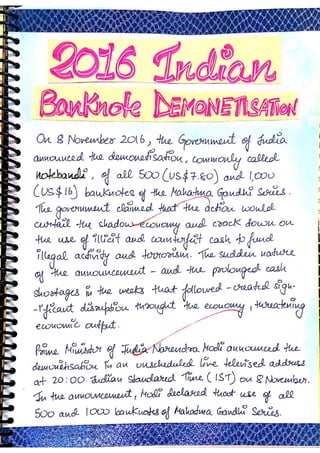 2016 Indian
BankNote DEMONETISATION
On 8 November 2016, the Government of India
announced the demonetisation, commonly called
notebandi, of all 500 (US$7.80) and 1,000
(US$16) banknotes of the Mahatma Gandhi Series.
The government claimed that the action would
curtail the shadow economy and crack down on
the use of illicit and counterfeit cash to fund
illegal activity and terrorism. The sudden nature
of the announcement - and the prolonged cash
shortages in the weeks that followed - created sign-
-ificant disruption throught the economy, threatening
economic output.
Prime Minister of India Narendra Modi announced the
demonetisation in an unscheduled live televised address
at 20:00 Indian Standared Time (IST) on 8 November.
In the announcement, Modi declared that use of all
500 and 1000 banknotes of Mahatma Gandhi Series.